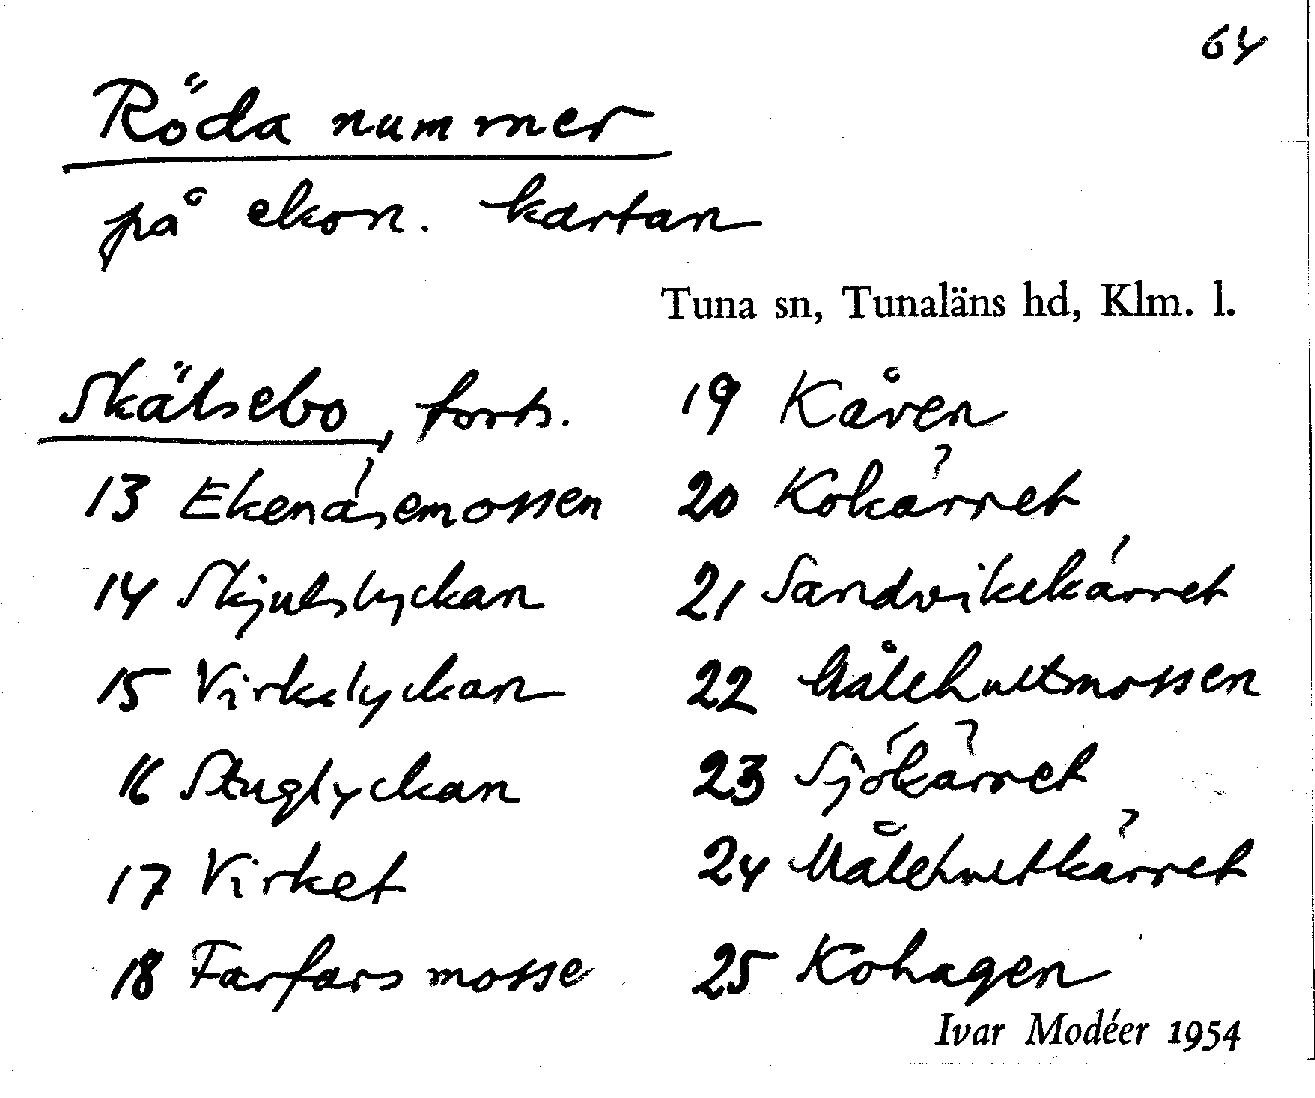 64
Röda nummer
på ekon. kartan
Tuna sn, Tunaläns hd, Klm. l.
Skälsebo, forts.
13 Ekenäsemossen
14 Skjulslyckan
15 Virkelyckan
16 Stuglyckan
17 Virket
18 Farfars mosse
19 Kåven
20 Kokärret
21 Sandvikekärret
22 Målehultmossen
23 Sjökärret
24 Målehultkärret
25 Kohagen
Ivar Modéer 1954